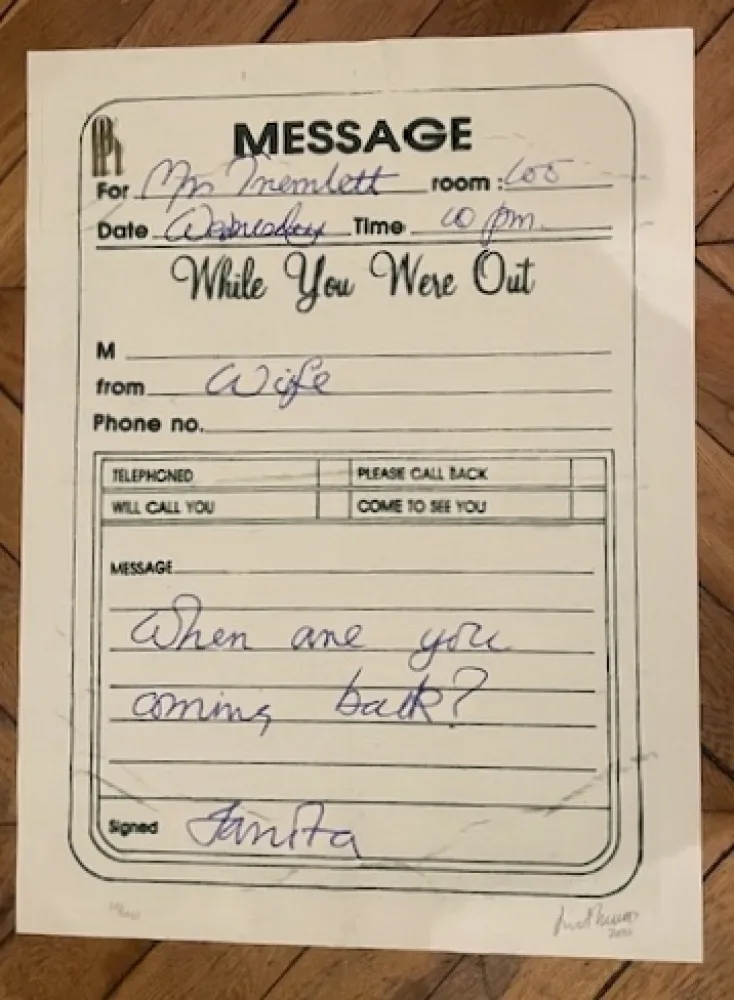 MESSAGE
For Mr Tremlett room: 600
Date Wednesday Time 10 pm.
While You Were Out
M
from Wife
Phone no.
TELEPHONED PLEASE CALL BACK
WILL CALL YOU COME TO SEE YOU
MESSAGE
When are you
coming back?
Signed Janita